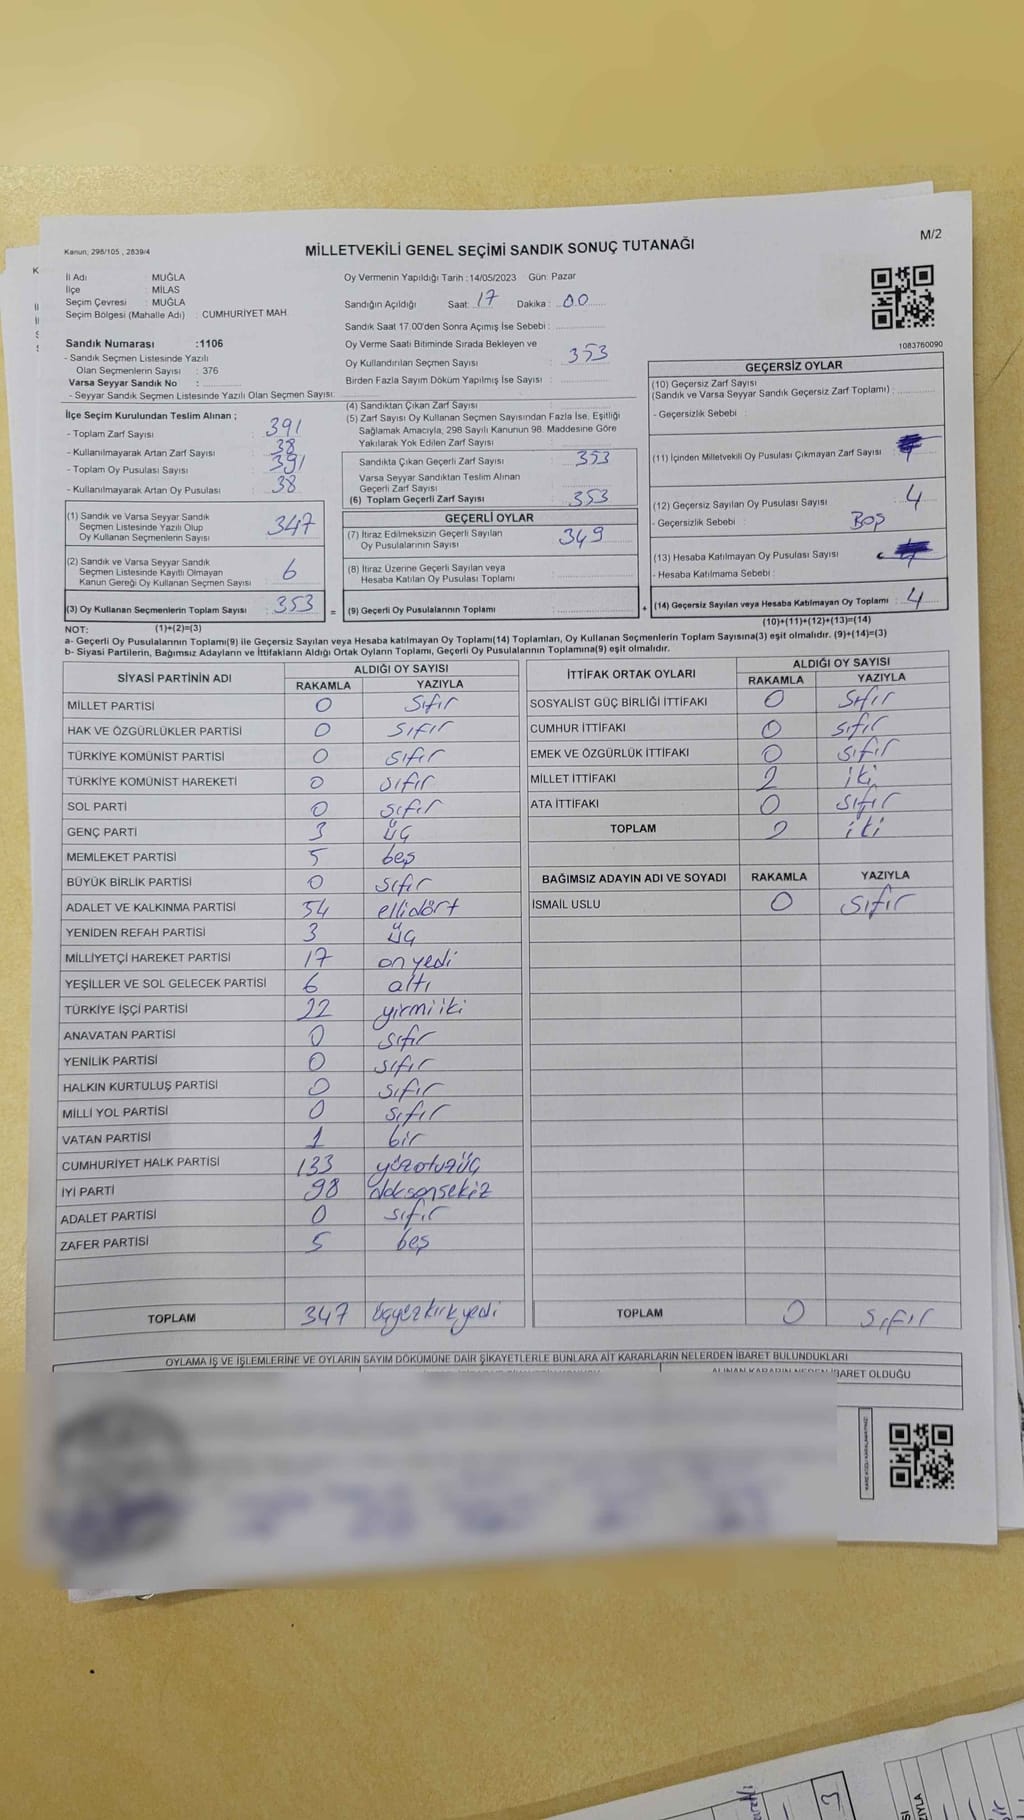 Kanun; 298/105 , 2839/4
MİLLETVEKİLİ GENEL SEÇİMİ SANDIK SONUÇ TUTANAĞI
M/2
İl Adı MUĞLA
İlçe MİLAS
Seçim Çevresi : MUĞLA
Seçim Bölgesi (Mahalle Adı) : CUMHURİYET MAH.
Sandık Numarası :1106
- Sandık Seçmen Listesinde Yazılı
Olan Seçmenlerin Sayısı : 376
Varsa Seyyar Sandık No :
- Seyyar Sandık Seçmen Listesinde Yazılı Olan Seçmen Sayısı:
İlçe Seçim Kurulundan Teslim Alınan ;
- Toplam Zarf Sayısı 391
- Kullanılmayarak Artan Zarf Sayısı 38
- Toplam Oy Pusulası Sayısı 391
- Kullanılmayarak Artan Oy Pusulası 38
(1) Sandık ve Varsa Seyyar Sandık
Seçmen Listesinde Yazılı Olup
Oy Kullanan Seçmenlerin Sayısı 347
(2) Sandık ve Varsa Seyyar Sandık
Seçmen Listesinde Kayıtlı Olmayan
Kanun Gereği Oy Kullanan Seçmen Sayısı 6
(3) Oy Kullanan Seçmenlerin Toplam Sayısı : 353 =
Oy Vermenin Yapıldığı Tarih :14/05/2023 Gün: Pazar
Sandığın Açıldığı Saat: 17 Dakika : 00
Sandık Saat 17.00'den Sonra Açımış İse Sebebi :
Oy Verme Saati Bitiminde Sırada Bekleyen ve
Oy Kullandırılan Seçmen Sayısı : 353
Birden Fazla Sayım Döküm Yapılmış İse Sayısı :
(4) Sandıktan Çıkan Zarf Sayısı
(5) Zarf Sayısı Oy Kullanan Seçmen Sayısından Fazla İse, Eşitliği
Sağlamak Amacıyla, 298 Sayılı Kanunun 98. Maddesine Göre
Yakılarak Yok Edilen Zarf Sayısı
Sandıkta Çıkan Geçerli Zarf Sayısı 353
Varsa Seyyar Sandıktan Teslim Alınan
Geçerli Zarf Sayısı
(6) Toplam Geçerli Zarf Sayısı 353
GEÇERLİ OYLAR
(7) İtiraz Edilmeksizin Geçerli Sayılan
Oy Pusulalarının Sayısı 349
(8) İtiraz Üzerine Geçerli Sayılan veya
Hesaba Katılan Oy Pusulası Toplamı
(9) Geçerli Oy Pusulalarının Toplamı +
1083760090
GEÇERSİZ OYLAR
(10) Geçersiz Zarf Sayısı
(Sandık ve Varsa Seyyar Sandık Geçersiz Zarf Toplamı) :
- Geçersizlik Sebebi :
(11) İçinden Milletvekili Oy Pusulası Çıkmayan Zarf Sayısı :
(12) Geçersiz Sayılan Oy Pusulası Sayısı 4
- Geçersizlik Sebebi : BOŞ
(13) Hesaba Katılmayan Oy Pusulası Sayısı
- Hesaba Katılmama Sebebi :
(14) Geçersiz Sayılan veya Hesaba Katılmayan Oy Toplamı : 4
NOT: (1)+(2)=(3)
(10)+(11)+(12)+(13)=(14)
a- Geçerli Oy Pusulalarının Toplamı(9) ile Geçersiz Sayılan veya Hesaba katılmayan Oy Toplamı(14) Toplamları, Oy Kullanan Seçmenlerin Toplam Sayısına(3) eşit olmalıdır. (9)+(14)=(3)
b- Siyasi Partilerin, Bağımsız Adayların ve İttifakların Aldığı Ortak Oyların Toplamı, Geçerli Oy Pusulalarının Toplamına(9) eşit olmalıdır.
SİYASİ PARTİNİN ADI ALDIĞI OY SAYISI
RAKAMLA YAZIYLA
MİLLET PARTİSİ 0 Sıfır
HAK VE ÖZGÜRLÜKLER PARTİSİ 0 Sıfır
TÜRKİYE KOMÜNİST PARTİSİ 0 Sıfır
TÜRKİYE KOMÜNİST HAREKETİ 0 sıfır
SOL PARTİ 0 sıfır
GENÇ PARTİ 3 üç
MEMLEKET PARTİSİ 5 beş
BÜYÜK BİRLİK PARTİSİ 0 sıfır
ADALET VE KALKINMA PARTİSİ 54 ellidört
YENİDEN REFAH PARTİSİ 3 üç
MİLLİYETÇİ HAREKET PARTİSİ 17 onyedi
YEŞİLLER VE SOL GELECEK PARTİSİ 6 altı
TÜRKİYE İŞÇİ PARTİSİ 22 yirmiiki
ANAVATAN PARTİSİ 0 sıfır
YENİLİK PARTİSİ 0 sıfır
HALKIN KURTULUŞ PARTİSİ 0 sıfır
MİLLİ YOL PARTİSİ 0 sıfır
VATAN PARTİSİ 1 bir
CUMHURİYET HALK PARTİSİ 133 yüzotuzüç
İYİ PARTİ 98 doksansekiz
ADALET PARTİSİ 0 sıfır
ZAFER PARTİSİ 5 beş
TOPLAM 347 üçyüzkırkyedi
İTTİFAK ORTAK OYLARI ALDIĞI OY SAYISI
RAKAMLA YAZIYLA
SOSYALİST GÜÇ BİRLİĞİ İTTİFAKI 0 Sıfır
CUMHUR İTTİFAKI 0 sıfır
EMEK VE ÖZGÜRLÜK İTTİFAKI 0 sıfır
MİLLET İTTİFAKI 2 iki
ATA İTTİFAKI 0 sıfır
TOPLAM 2 iki
BAĞIMSIZ ADAYIN ADI VE SOYADI RAKAMLA YAZIYLA
İSMAİL USLU 0 sıfır
TOPLAM 0 sıfır
OYLAMA İŞ VE İŞLEMLERİNE VE OYLARIN SAYIM DÖKÜMÜNE DAİR ŞİKAYETLERLE BUNLARA AİT KARARLARIN NELERDEN İBARET BULUNDUKLARI
ALINAN KARARIN NEDEN İBARET OLDUĞU